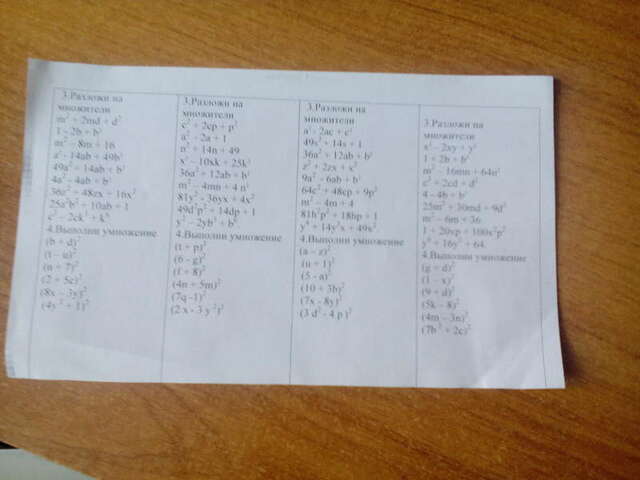 3.Разложи на
множители
m² + 2md + d²
1 - 2b + b²
m² – 8m + 16
a² - 14ab + 49b²
49a² + 14ab + b²
4a² – 4ab + b²
36z² – 48zx + 16x²
25a²b² + 10ab + 1
c² – 2ck³ + k⁶
4.Выполни умножение
(b + d)²
(t – u)²
(n + 7)²
(2 + 5c)²
(8x – 3y)²
(4y² + 1)²
3.Разложи на
множители
c² + 2cp + p²
a² – 2a + 1
n² + 14n + 49
x² – 10xk + 25k²
36a² + 12ab + b²
m² – 4mn + 4 n²
81y² - 36yx + 4x²
49d²p² + 14dp + 1
y² – 2yb³ + b⁶
4.Выполни умножение
(t + p)²
(6 - g)²
(f + 8)²
(4n + 5m)²
(7q -1)²
(2 x - 3 y²)²
3.Разложи на
множители
a² - 2ac + c²
49s² + 14s + 1
36a² + 12ab + b²
z² + 2zx + x²
9a² – 6ab + b²
64c² + 48cp + 9p²
m² – 4m + 4
81h²p² + 18hp + 1
4.Выполни умножение
(a – z)²
(u + 1)²
(5 - a)²
(10 + 3b)²
(7x - 8y)²
3.Разложи на
множители
x² – 2xy + y²
1 + 2b + b²
m² – 16mn + 64n²
c² + 2cd + d²
4 - 4b + b²
25m² + 30md + 9d²
m² – 6m + 36
1 + 20vp + 100v²p²
4.Выполни умножение
(g + d)²
(1 – x)²
(9 + d)²
(5k – 8)²
(4m – 3n)²